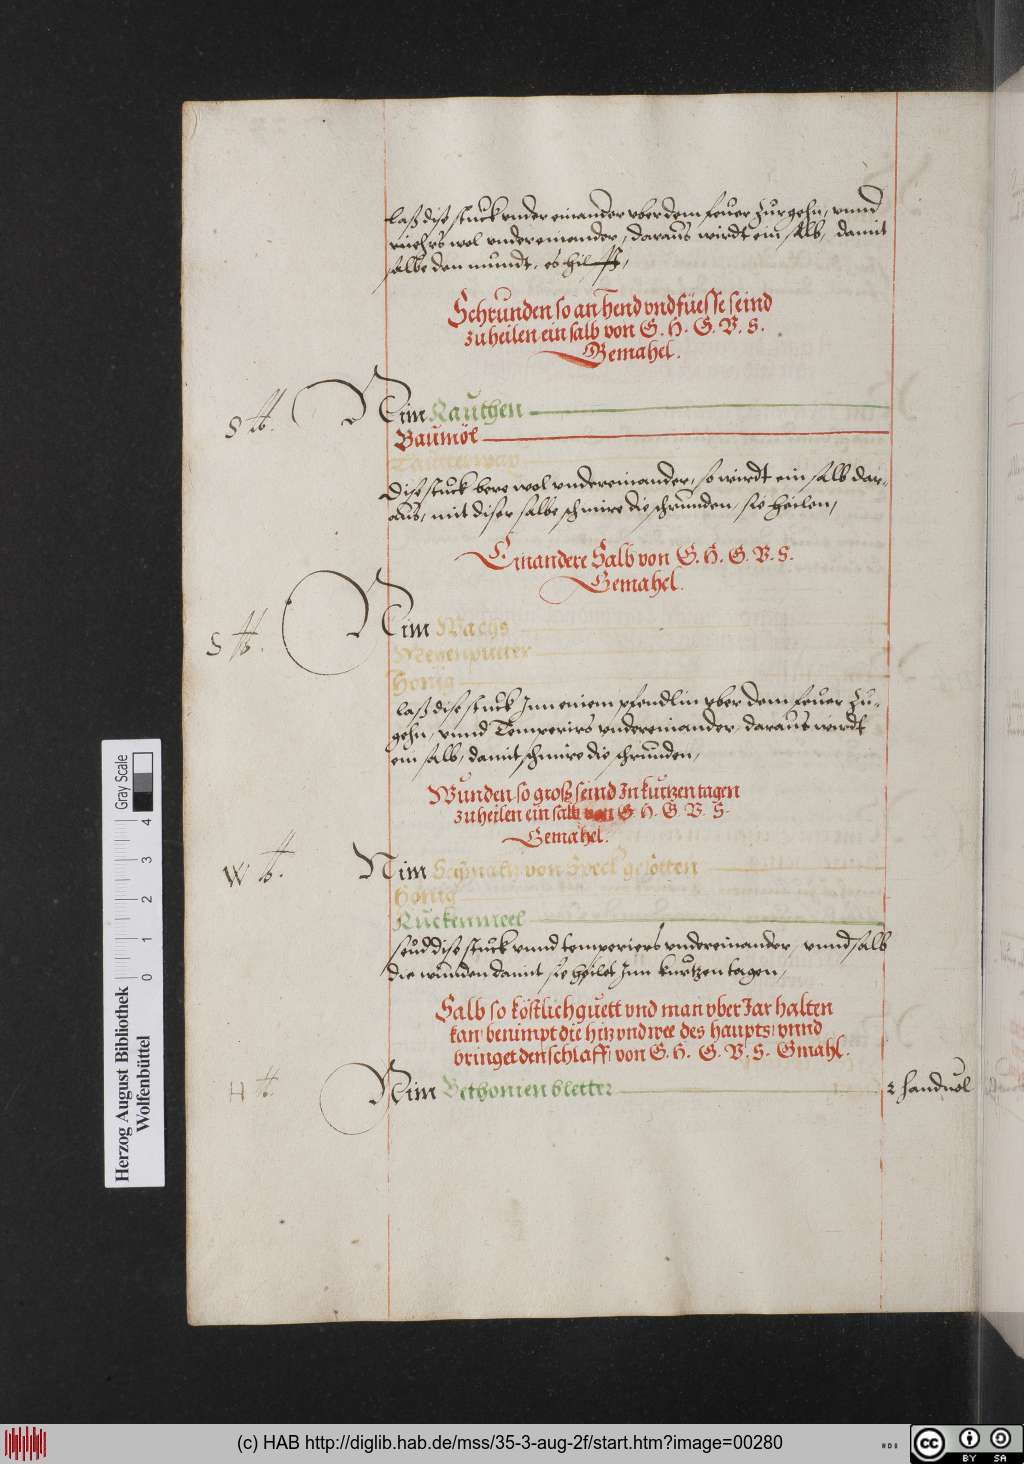 laß dise stuck vnder einander vber dem feuer zurgehn, vnnd
ruehrs wol vndereinander, daraus wirdt ein salb, damit
salbe den mundt, es hilfft,
Schrunden so an hend vnd füesse seind
zuheilen ein salb von G. H. G. V. S.
Gemahel.
S
Nim Rauthen
Baumöl
Dise stuck bere wol vndereinander, so wirdt ein salb dar-
aus, mit diser salbe schmire die schrunden, sie heilen,
Ein andere Salb von G. H. G. V. S.
Gemahel.
S
Nim Wachs
Meyenputter
Honig
laß dise stuck Inn einem pfendlin vber dem feuer zu-
gehn, vnnd Temperirs vndereinander, daraus wirdt
ein salb, damit schmire die schrunden,
Wunden so groß seind In kurtzen tagen
zuheilen ein salb von G. H. G. V. S.
Gemahel.
W
Nim von Speck gesotten
Honig
Ruckenmeel
seud dise stuck vnnd temperiers vndereinander, vnnd salb
die wunden damit sie heilet Inn kurtzen tagen,
Salb so köstlich guett vnd man vber Jar halten
kan benimpt die hitz vnd wee des haupts vnnd
bringet den schlaff von G. H. G. V. S. Gmahl.
H
Nim Bethonien bletter 2 handvol
Gray Scale
4 3 2 1 0
Herzog August Bibliothek
Wolfenbüttel
(c) HAB http://diglib.hab.de/mss/35-3-aug-2f/start.htm?image=00280
cc BY SA